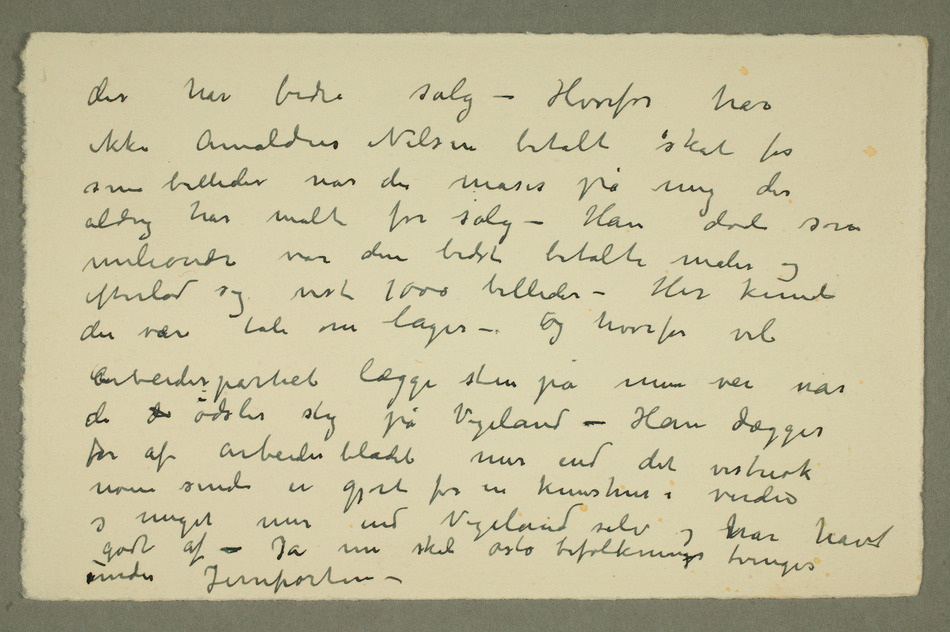 der har bedre salg – Hvorfor har
ikke Amaldus Nilsen betalt skat for
sine billeder når der mases på mig der
aldrig har malt for salg – Han døde som
milionær var den bedst betalte maler og
efterlod sig vist 1000 billeder – Her kunde
der være tale om lager –. Og hvorfor vil
Arbeiderpartiet lægge sten på min vei når
de ødsler slig på Vigeland – Han dægges
for af Arbeiderbladet mer end det vistnok
noensinde er gjort for en kunstner i verden
og meget mer end Vigeland selv og har havt
godt af – Ja nu skal oslobefolkningen tvinges
under Jernporten –